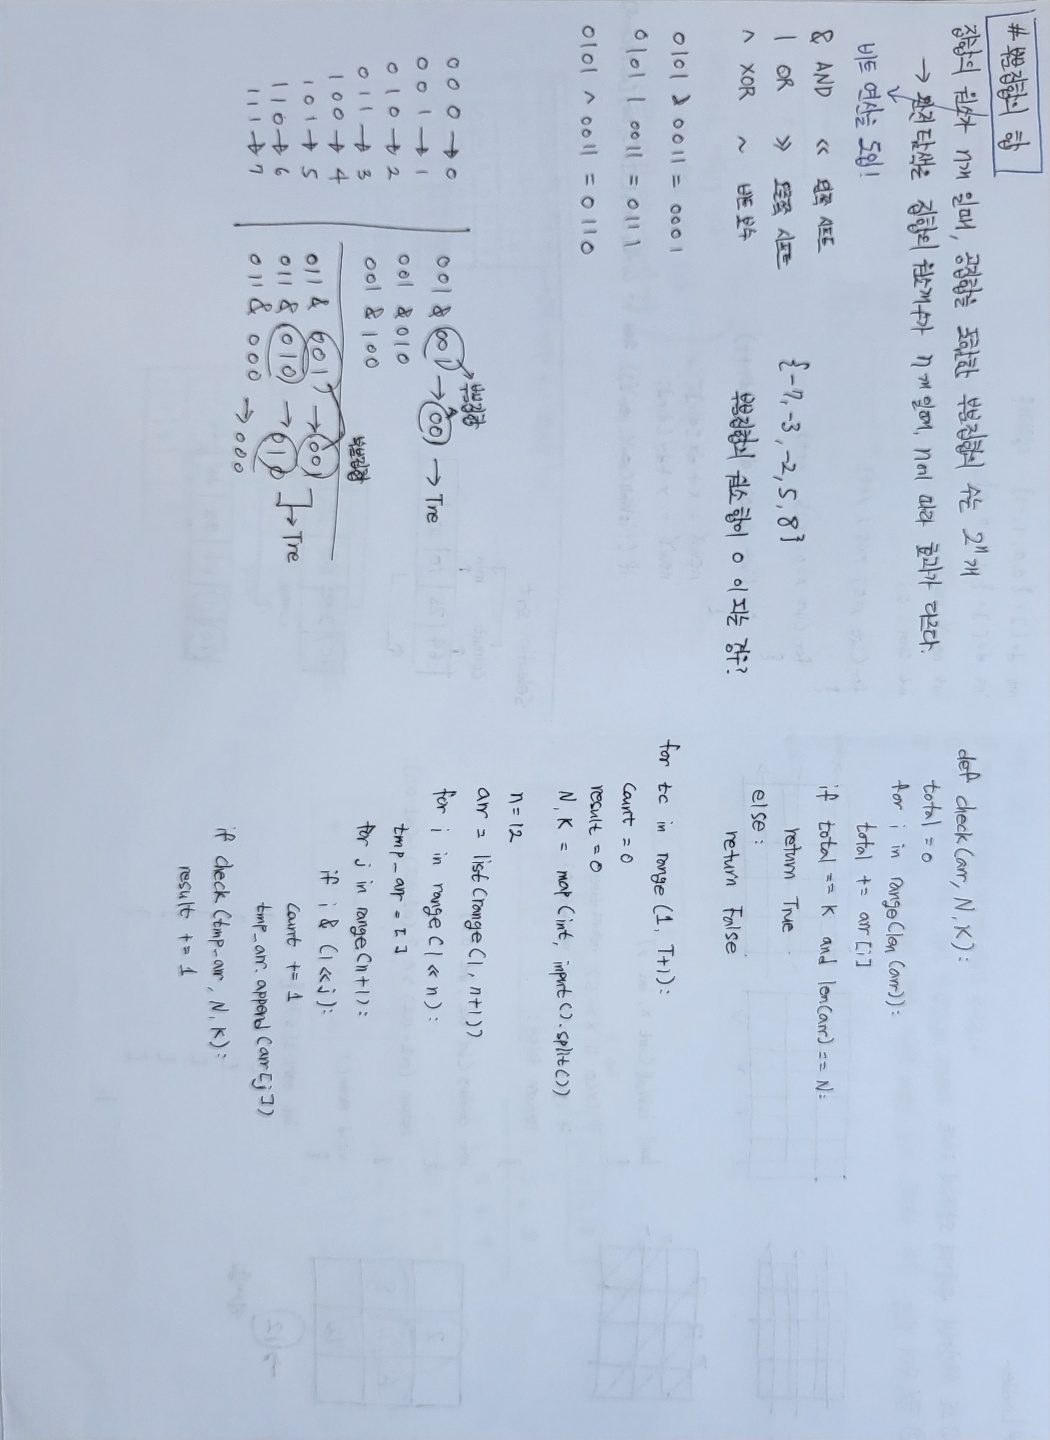 # 부분집합의 합
집합의 원소가 n개 일때, 공집합을 포함한 부분집합의 수는 2ⁿ개
→ 완전 탐색은 집합의 원소개수가 n개일때, n에 따라 효과가 다르다.
비트 연산을 도입!
& AND << 왼쪽 시프트
| OR >> 오른쪽 시프트
^ XOR ~ 비트 보수
{-7, -3, -2, 5, 8}
부분집합의 원소 합이 0 이 되는 경우?
0101 & 0011 = 0001
0101 | 0011 = 0111
0101 ^ 0011 = 0110
000 → 0
001 → 1
010 → 2
011 → 3
100 → 4
101 → 5
110 → 6
111 → 7
부분집합
001 & 001 → 001 → Tre
001 & 010
001 & 100
부분집합
011 & 001 → 001
011 & 010 → 010 → Tre
011 & 000 → 000
def check(arr, N, K):
total = 0
for i in range(len(arr)):
total += arr[i]
if total == K and len(arr) == N:
return True
else:
return False
for tc in range(1, T+1):
count = 0
result = 0
N, K = map(int, input().split())
n = 12
arr = list(range(1, n+1))
for i in range(1 << n):
tmp_arr = []
for j in range(n+1):
if i & (1 << j):
count += 1
tmp_arr.append(arr[j])
if check(tmp_arr, N, K):
result += 1